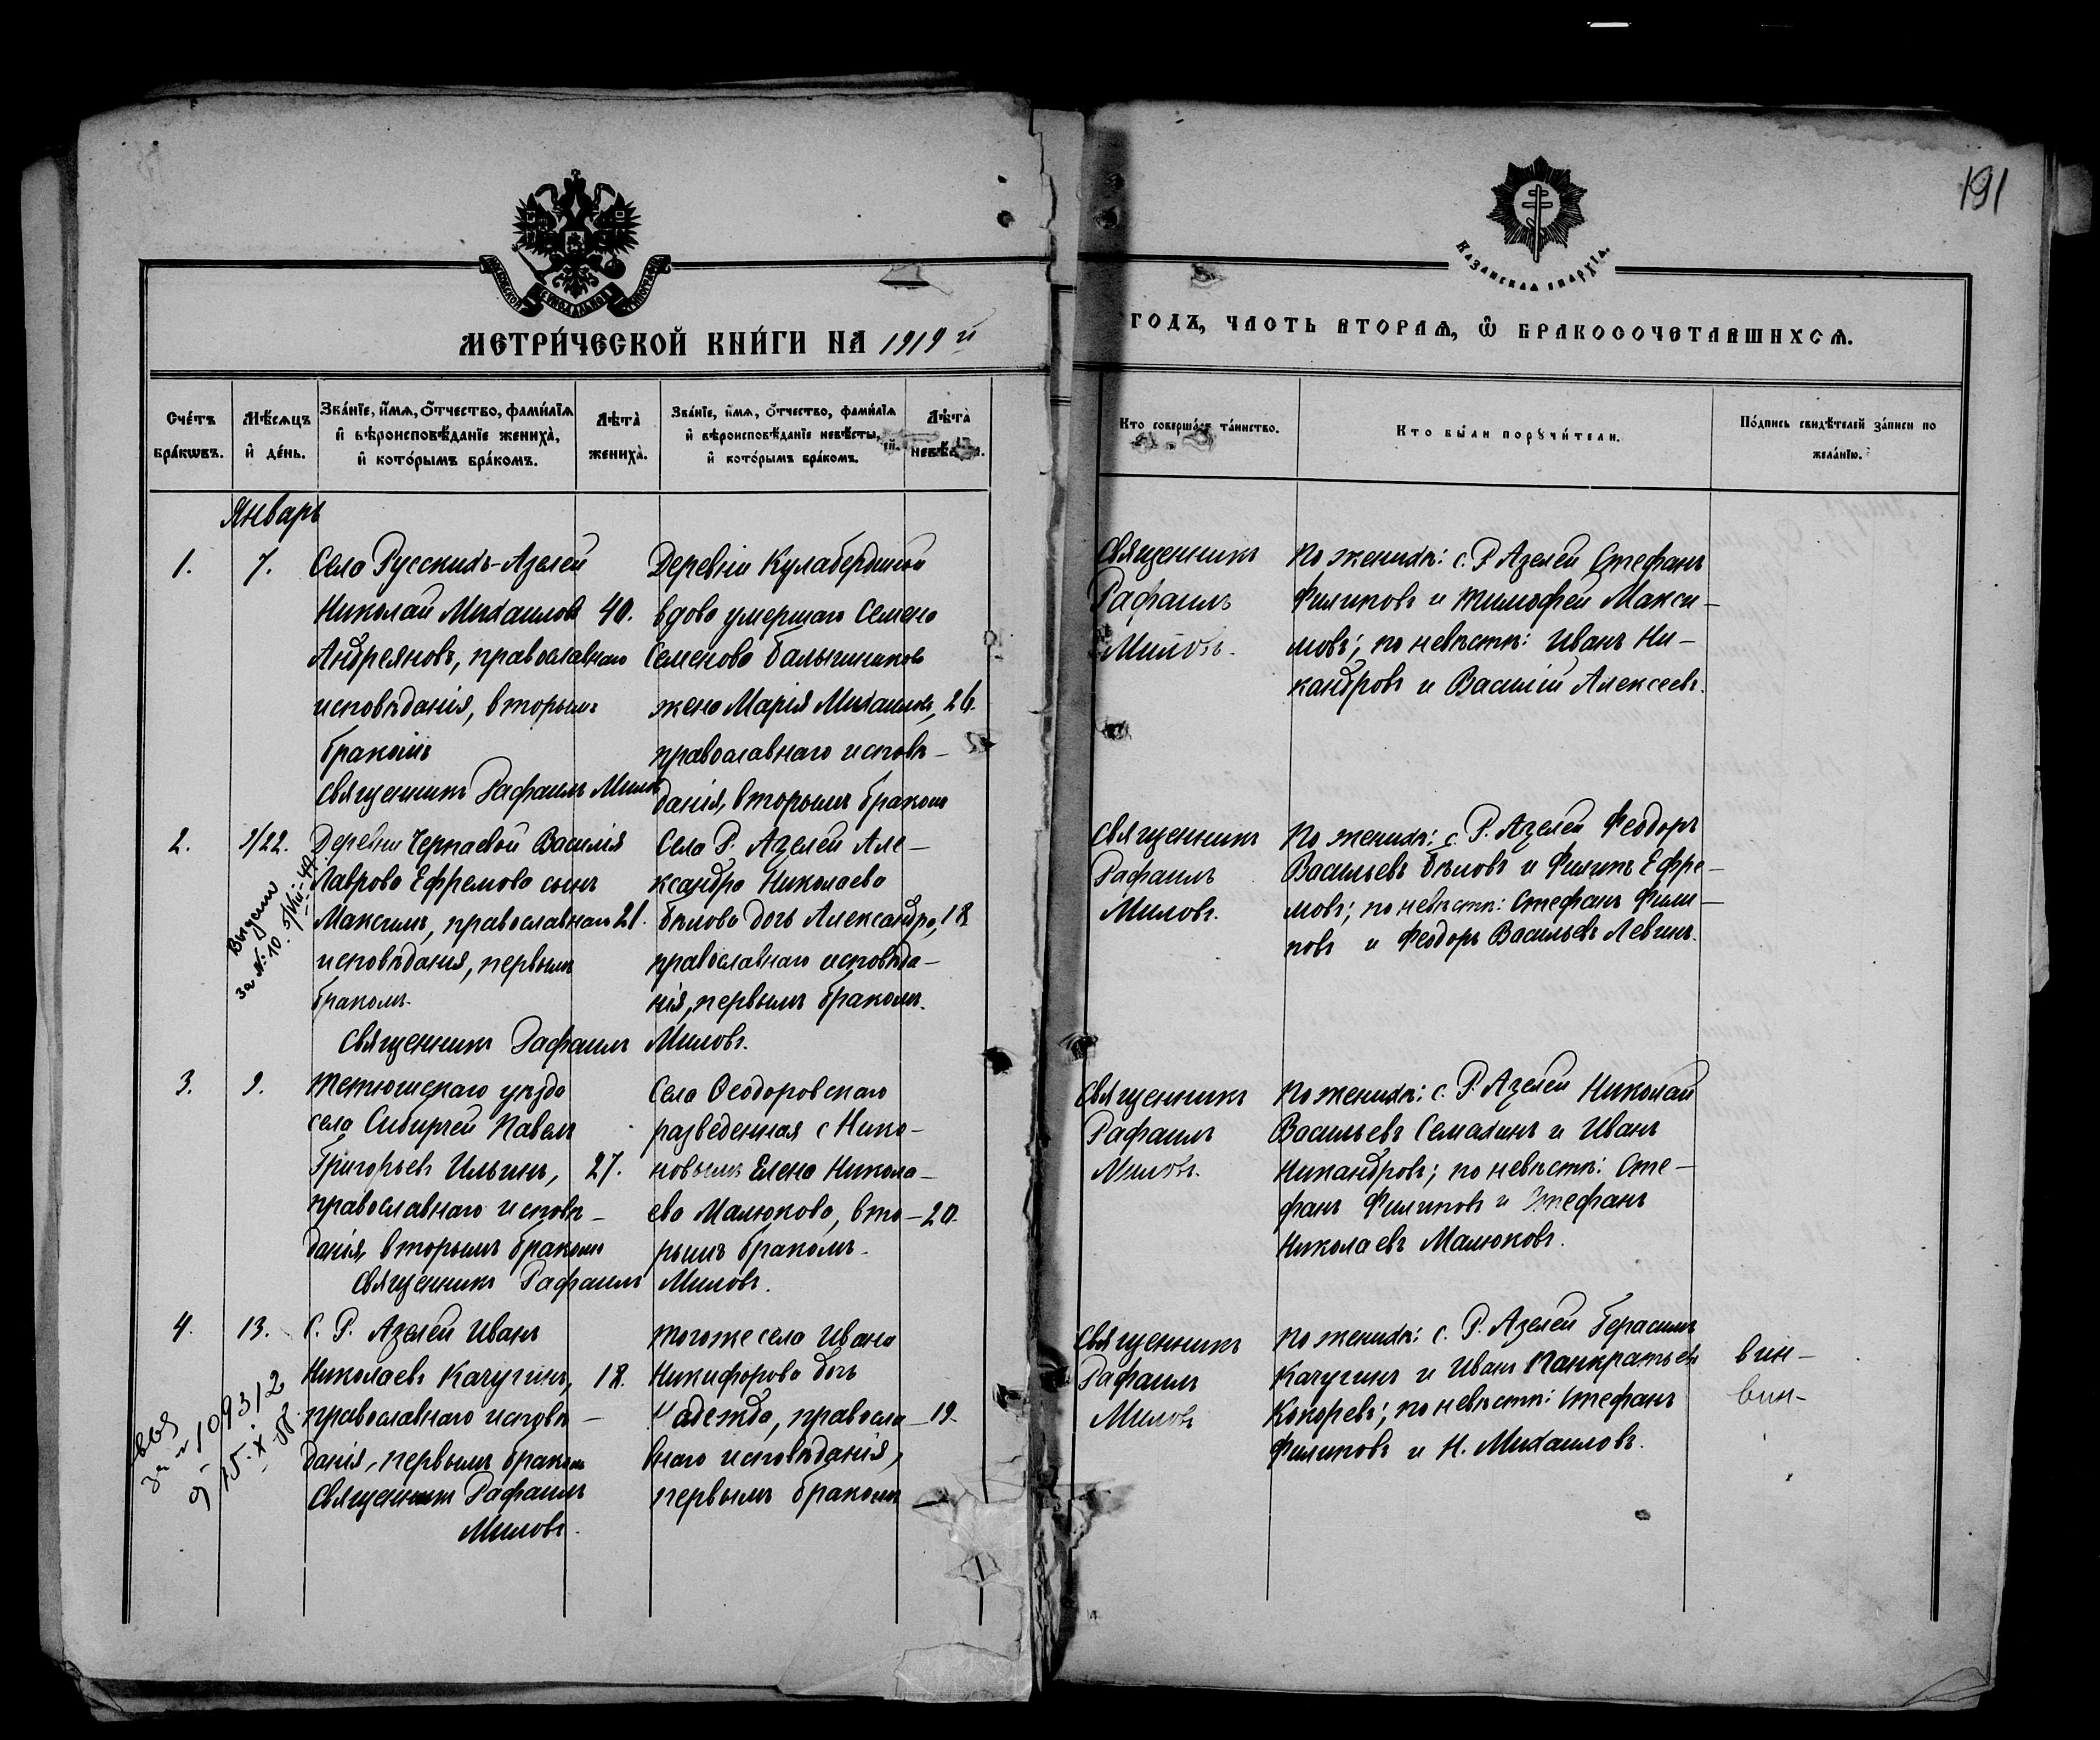 191
МОСКОВСКОЙ СѴНОДАЛЬНОЙ ТИПОГРАФІИ
КАЗАНСКАЯ ЕПАРХІЯ.
МЕТРИ́ЧЕСКОЙ КНИ́ГИ НА 1919 й
ГОДЪ, ЧАСТЬ ВТОРАѦ, Ѿ БРАКОСОЧЕТАВШИХСѦ.
Сче́тъ бра́кѡвъ.
Мѣ́сѧцъ и҆ де́нь.
Зва́нїе, и҆́мѧ, ѻ҆́тчество, фами́лїѧ и҆ вѣроисповѣ́данїе жениха̀, и҆ кото́рымъ бра́комъ.
Лѣ́та̀ жениха̀.
Зва́нїе, и҆́мѧ, ѻ҆́тчество, фами́лїѧ и҆ вѣроисповѣ́данїе невѣ́сты, и҆ кото́рымъ бра́комъ.
Лѣ́та̀ невѣ́сты.
Кто соверша́лъ та́инство.
Кто бы́ли порꙋчи́тели.
По́дпись свидѣ́телей за́писи по жела́нїю.
Январь
1.
7.
Село Русскихъ-Азелей
Николай Михаиловъ
Андреяновъ, православнаго
исповѣданія, вторымъ
бракомъ
священникъ Рафаилъ Миловъ
40.
Деревни Кулабердиной
вдова умершаго Семена
Семенова
жена Марія Михаилова,
православнаго исповѣ-
данія, вторымъ бракомъ
26.
Священникъ
Рафаилъ
Миловъ.
По женихѣ: с. Р. Азелей Стефанъ
Филиповъ и Тимофей Макси-
мовъ; по невѣстѣ: Иванъ Ни-
кандровъ и Василій Алексеевъ.
2.
9/22.
Выдано
за № 10.
Деревни Черпаевой Василія
Лаврова Ефремова сынъ
Максимъ, православнаго
исповѣданія, первымъ
бракомъ.
священникъ Рафаилъ Миловъ.
21.
Села Р. Азелей Але-
ксандра Николаева
Бѣлова дочь Александра,
православнаго исповѣда-
нія, первымъ бракомъ.
18
Священникъ
Рафаилъ
Миловъ.
По женихѣ: с. Р. Азелей Феодоръ
Васильевъ Бѣловъ и Филипъ Ефре-
мовъ; по невѣстѣ: Стефанъ Фили-
повъ и Феодоръ Васильевъ Левинъ.
3.
9.
Тетюшскаго уѣзда
села Сибирчей Павелъ
Григорьевъ Ильинъ,
православнаго исповѣ-
данія, вторымъ бракомъ
священникъ Рафаилъ Миловъ.
27.
Села Феодоровскаго
разведенная с Нико-
новымъ Елена Никола-
ева Малюкова, вто-
рымъ бракомъ.
20.
Священникъ
Рафаилъ
Миловъ.
По женихѣ: с. Р. Азелей Николай
Васильевъ Семахинъ и Иванъ
Никандровъ; по невѣстѣ: Сте-
фанъ Филиповъ и Стефанъ
Николаевъ Малюковъ.
4.
13.
за № 109312
15.X
С. Р. Азелей Иванъ
Николаевъ Качугинъ,
православнаго исповѣ-
данія, первымъ бракомъ
Священникъ Рафаилъ
Миловъ.
18.
тогоже села Ивана
Никифорова дочь
Надежда, правосла-
внаго исповѣданія,
первымъ бракомъ
19.
Священникъ
Рафаилъ
Миловъ
По женихѣ: с. Р. Азелей Герасимъ
Качугинъ и Иванъ Панкратьевъ
Кокоревъ; по невѣстѣ: Стефанъ
Филиповъ и Н. Михаиловъ.